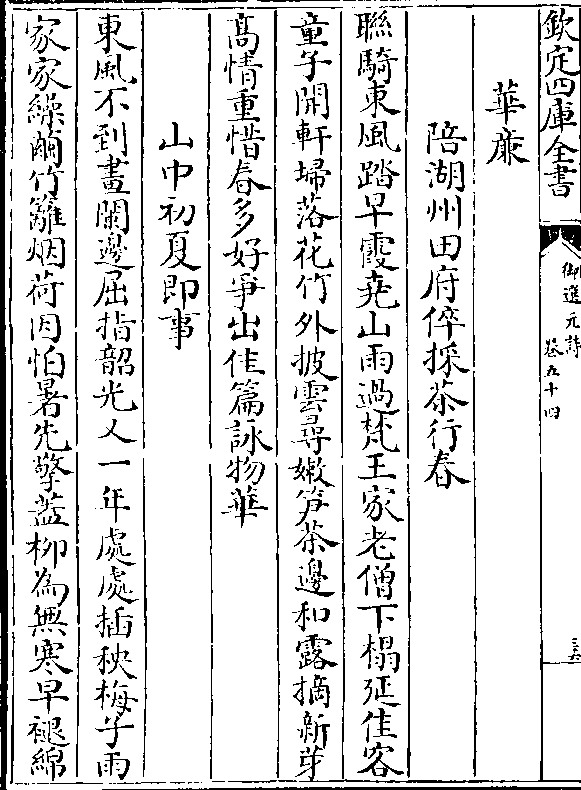 欽定四庫全書
御選元詩
卷五十四
三六
華廉
陪湖州田府倅採茶行春
聯騎東風踏早霞堯山雨過梵王家老僧下榻延佳客
童子開軒埽落花竹外披雲尋嫩筍茶邊和露摘新芽
髙情重惜春多好爭出佳篇詠物華
山中初夏即事
東風不到畫闌邊屈指韶光又一年處處插秧梅子雨
家家繰繭竹籬烟荷因怕暑先擎葢柳為無寒早褪綿